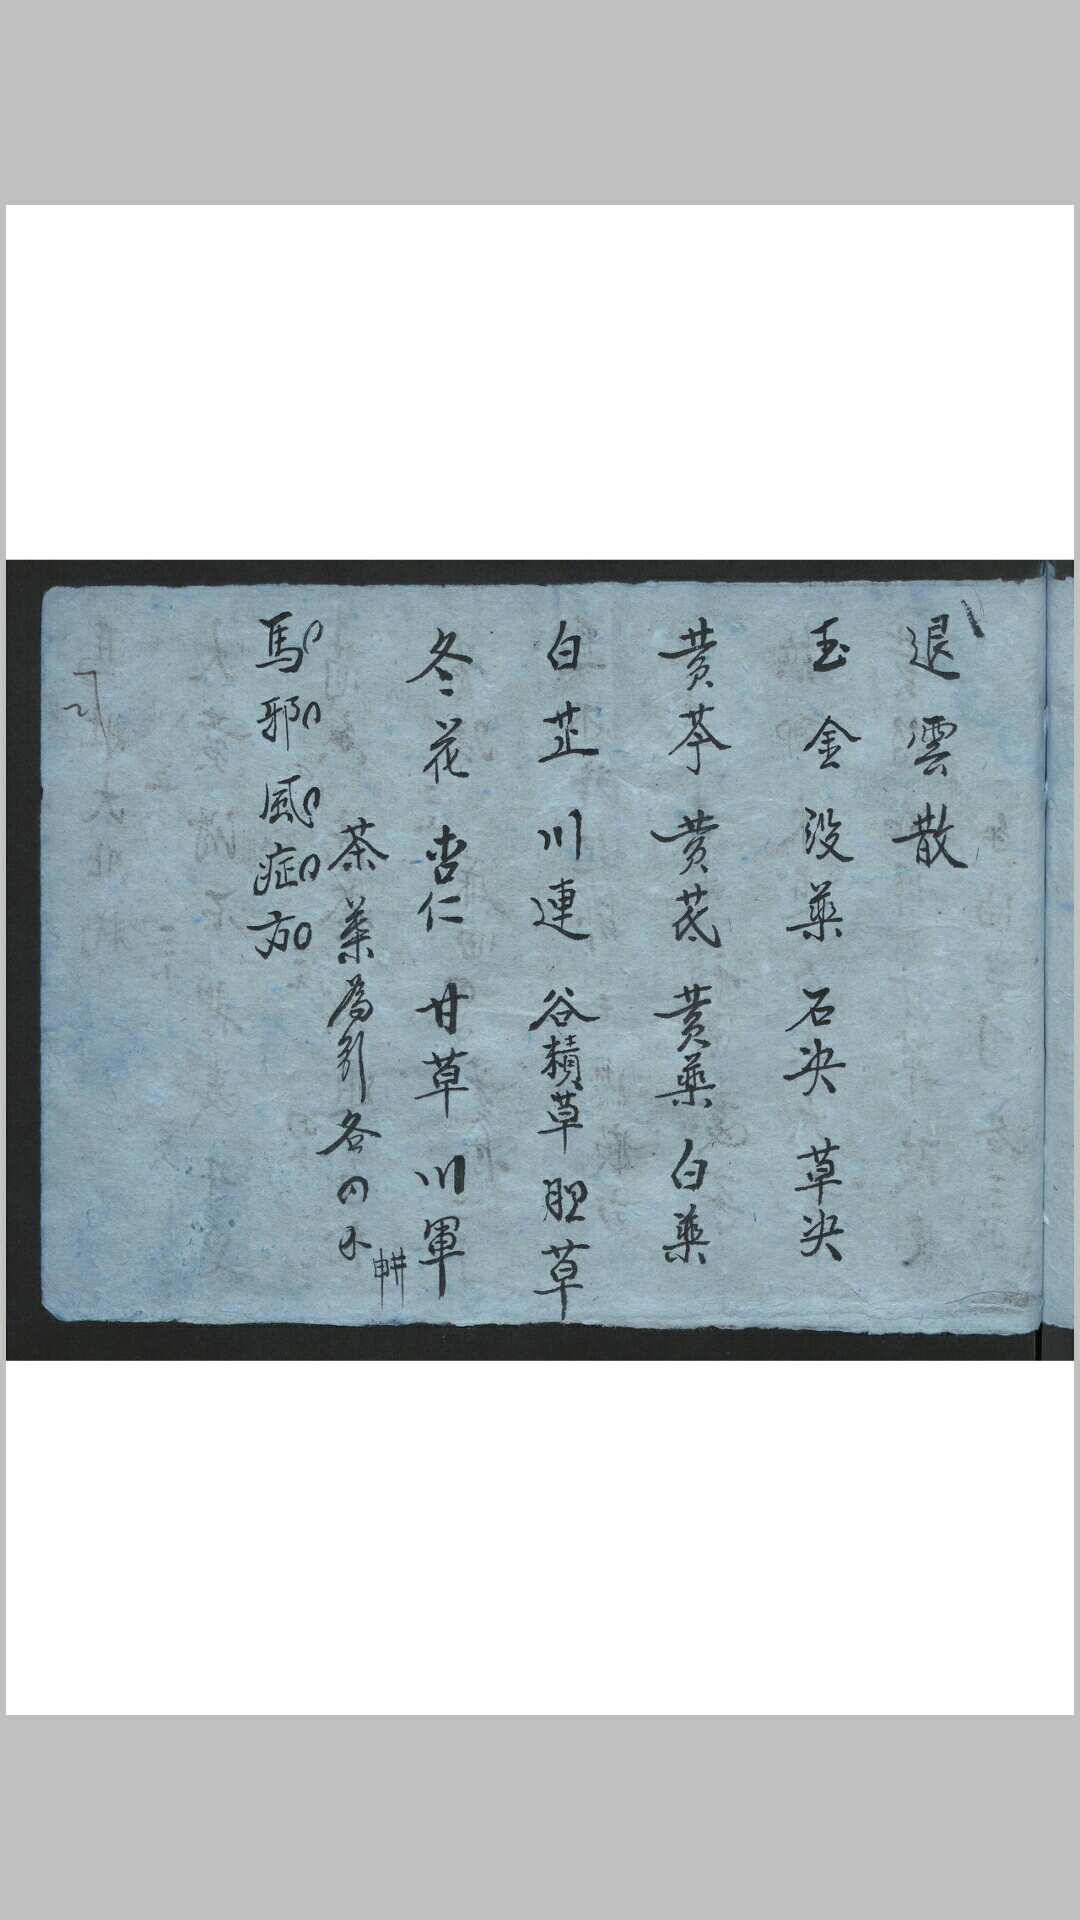 退雲散
玉金 没薬 石决 草决
黄芩 黄芪 黄薬 白薬
白芷 川連 谷積草 胆草
冬花 杏仁 甘草 川軍
茶葉為引 各
馬邪風症方